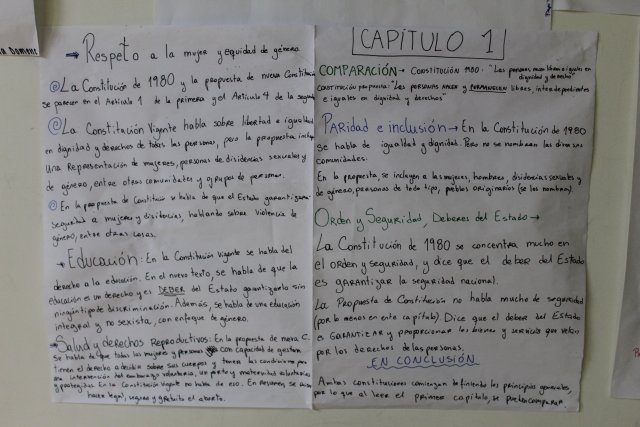 → Respeto a la mujer y equidad de género
La Constitución de 1980 y la propuesta de nueva Constitución
se parecen en el Artículo 1 de la primera y el Artículo 4 de la segunda
La Constitución Vigente habla sobre libertad e igualdad
en dignidad y derechos de todas las personas, pero la propuesta incluye
una Representación de mujeres, personas de disidencias sexuales y
de género, entre otras comunidades y grupos de personas.
En la propuesta de Constitución habla de que el Estado garantizará
seguridad a mujeres y disidencias, hablando sobre violencia de
género, entre otras cosas.
→ Educación: En la Constitución Vigente se habla del
derecho a la educación. En el nuevo texto, se habla de que la
educación es un derecho y es DEBER del Estado garantizarlo sin
ningún tipo de discriminación. Además, se habla de una educación
integral y no sexista, con enfoque de género.
→ Salud y derechos Reproductivos: En la propuesta de nueva C.
se habla de que todas las mujeres y personas con capacidad de gestar
tienen el derecho a decidir sobre sus cuerpos y tener las condiciones para
una interrupción del embarazo voluntaria, un parto y maternidad voluntarios
y protegidos. En la Constitución Vigente no habla de eso. En resumen, se busca
hacer legal, seguro y gratuito el aborto.
CAPÍTULO 1
COMPARACIÓN → CONSTITUCIÓN 1980: "Las personas nacen libres e iguales en
dignidad y derechos"
CONSTITUCIÓN PROPUESTA: "Las PERSONAS NACEN y PERMANECEN libres, interdependientes
e iguales en dignidad y derechos"
Paridad e inclusión → En la Constitución de 1980
se habla de igualdad y dignidad. Pero no se nombran las diversas
comunidades.
En la propuesta, se incluyen a las mujeres, hombres, disidencias sexuales y
de género, personas de todo tipo, pueblos originarios (se les nombra).
Orden y Seguridad, Deberes del Estado →
La Constitución de 1980 se concentra mucho en
el orden y seguridad, y dice que el deber del Estado
es garantizar la seguridad nacional.
La Propuesta de Constitución no habla mucho de seguridad
(por lo menos en este capítulo). Dice que el deber del Estado
es GARANTIZAR y proporcionar los bienes y servicios que velan
por los derechos de las personas.
EN CONCLUSIÓN
Ambas constituciones comienzan definiendo los principios generales,
por lo que al leer el primer capítulo, se pueden comparar